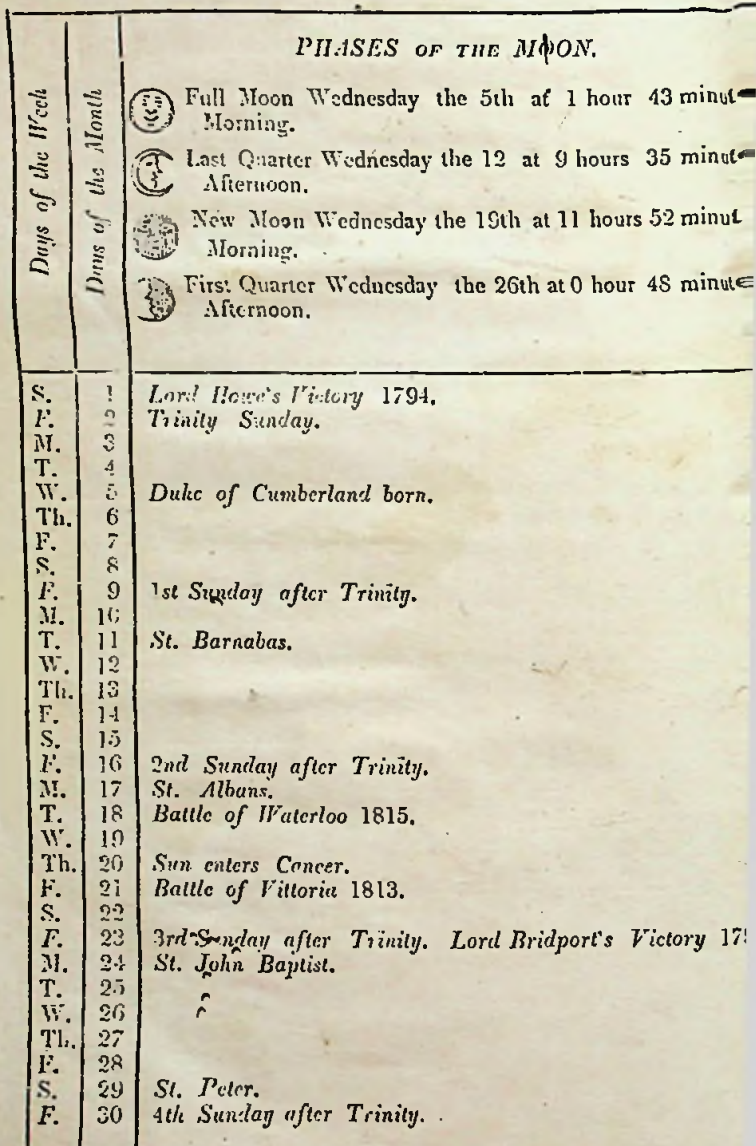 Days of the Week
Days of the Month
PHASES OF THE MOON.
Full Moon Wednesday the 5th at 1 hour 43 minut
Morning.
Last Quarter Wednesday the 12 at 9 hours 35 minute
Afternoon.
New Moon Wednesday the 19th at 11 hours 52 minut
Morning.
First Quarter Wednesday the 26th at 0 hour 48 minute
Afternoon.
S. 1 Lord Howe's Victory 1794.
F. 2 Trinity Sunday.
M. 3
T. 4
W. 5 Duke of Cumberland born.
Th. 6
F. 7
S. 8
F. 9 1st Sunday after Trinity.
M. 10
T. 11 St. Barnabas.
W. 12
Th. 13
F. 14
S. 15
F. 16 2nd Sunday after Trinity.
M. 17 St. Albans.
T. 18 Battle of Waterloo 1815.
W. 19
Th. 20 Sun enters Cancer.
F. 21 Battle of Vittoria 1813.
S. 22
F. 23 3rd Sunday after Trinity. Lord Bridport's Victory 17
M. 24 St. John Baptist.
T. 25
W. 26
Th. 27
F. 28
S. 29 St. Peter.
F. 30 4th Sunday after Trinity.